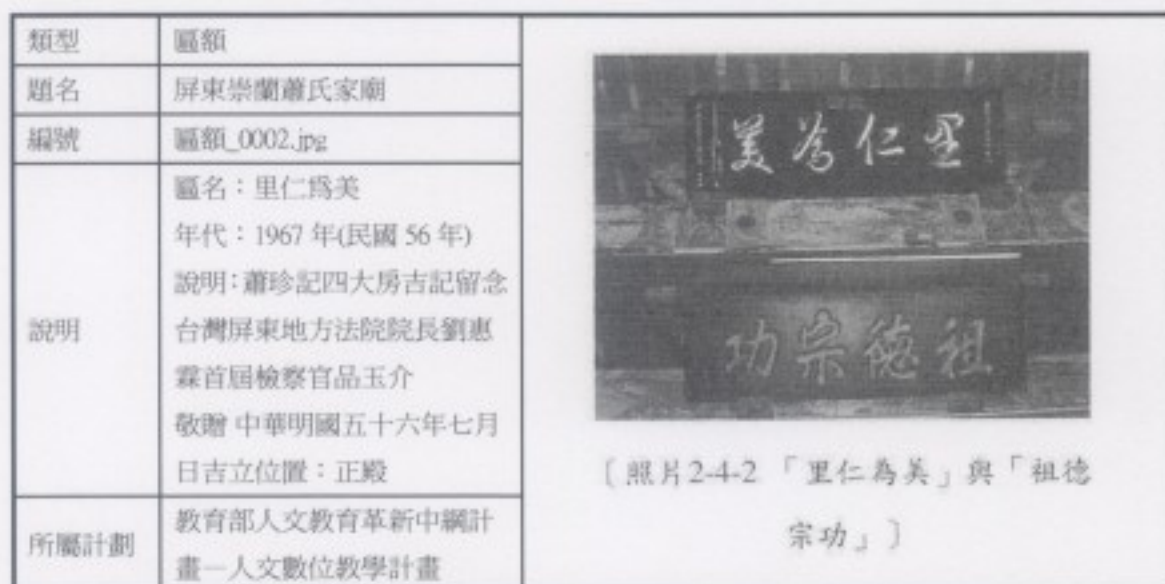 類型
匾額
題名
屏東崇蘭蕭氏家廟
編號
匾額_0002.jpg
說明
匾名：里仁爲美
年代：1967 年(民國 56 年)
說明：蕭珍記四大房吉記留念
台灣屏東地方法院院長劉惠
霖首屆檢察官品玉介
敬贈 中華明國五十六年七月
日吉立位置：正殿
所屬計劃
教育部人文教育革新中綱計
畫—人文數位教學計畫
美為仁里
功宗德祖
〔照片2-4-2 「里仁為美」與「祖德
宗功」〕